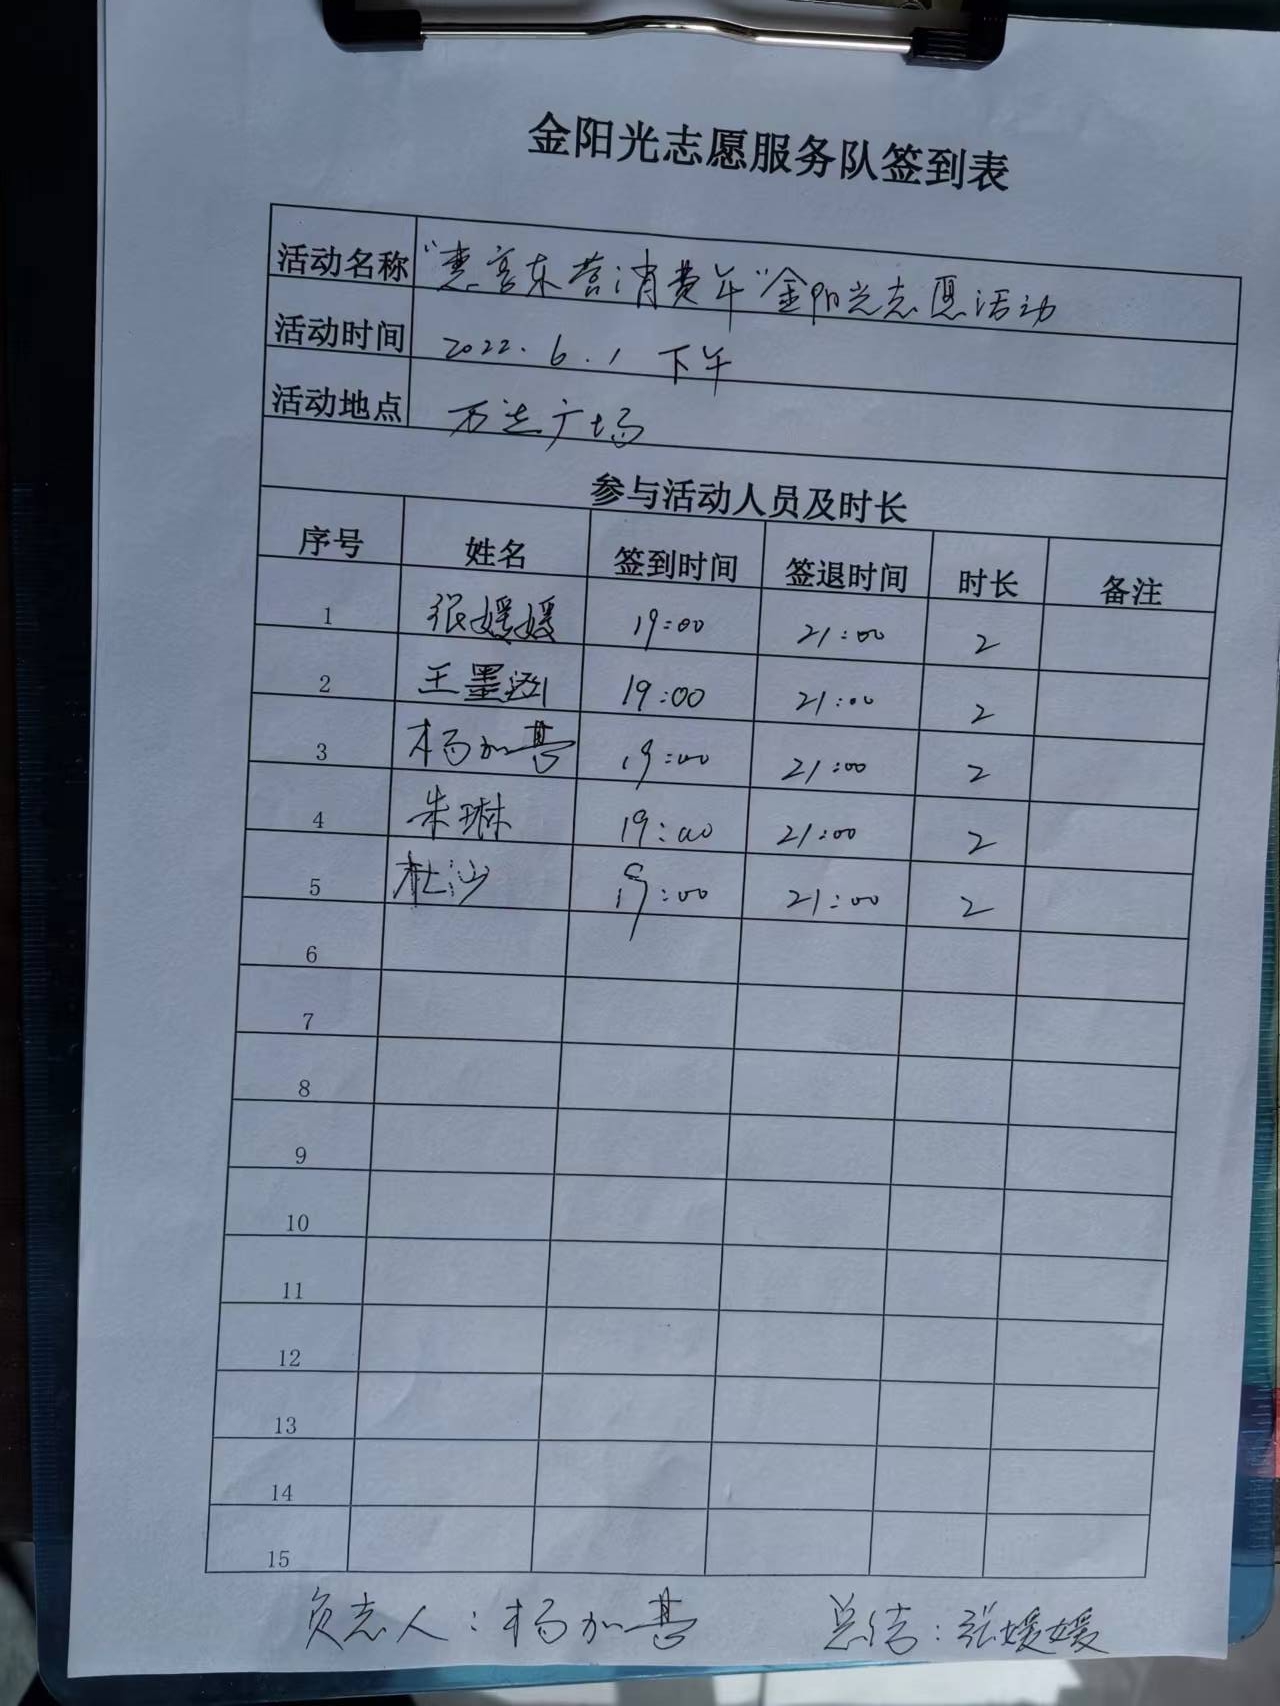 金阳光志愿服务队签到表
活动名称 “惠享东营消费年”金阳光志愿活动
活动时间 2022.6.1 下午
活动地点 万达广场
参与活动人员及时长
序号 姓名 签到时间 签退时间 时长 备注
1 张媛媛 19:00 21:00 2
2 王墨涵 19:00 21:00 2
3 杨加 19:00 21:00 2
4 朱琳 19:00 21:00 2
5 杜沙 19:00 21:00 2
6
7
8
9
10
11
12
13
14
15
负志人：杨加 总结：张媛媛